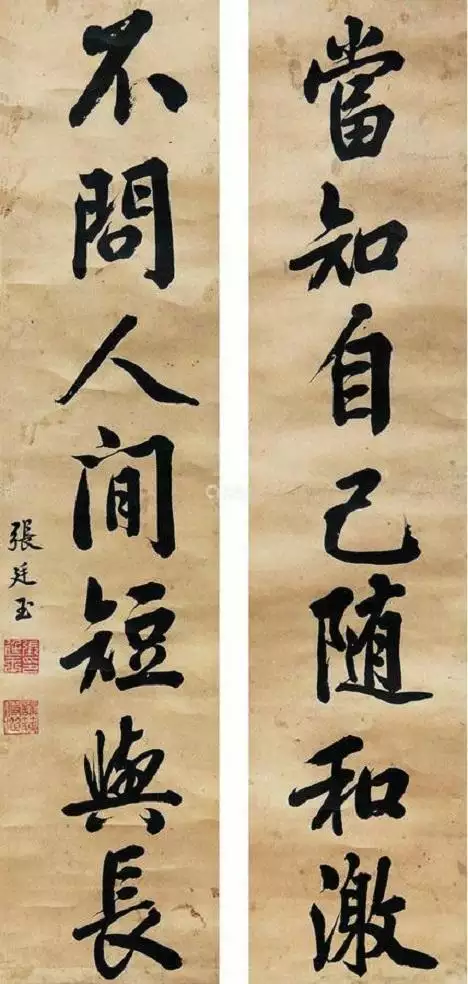 當知自己随和激
不問人間短與長
張廷玉